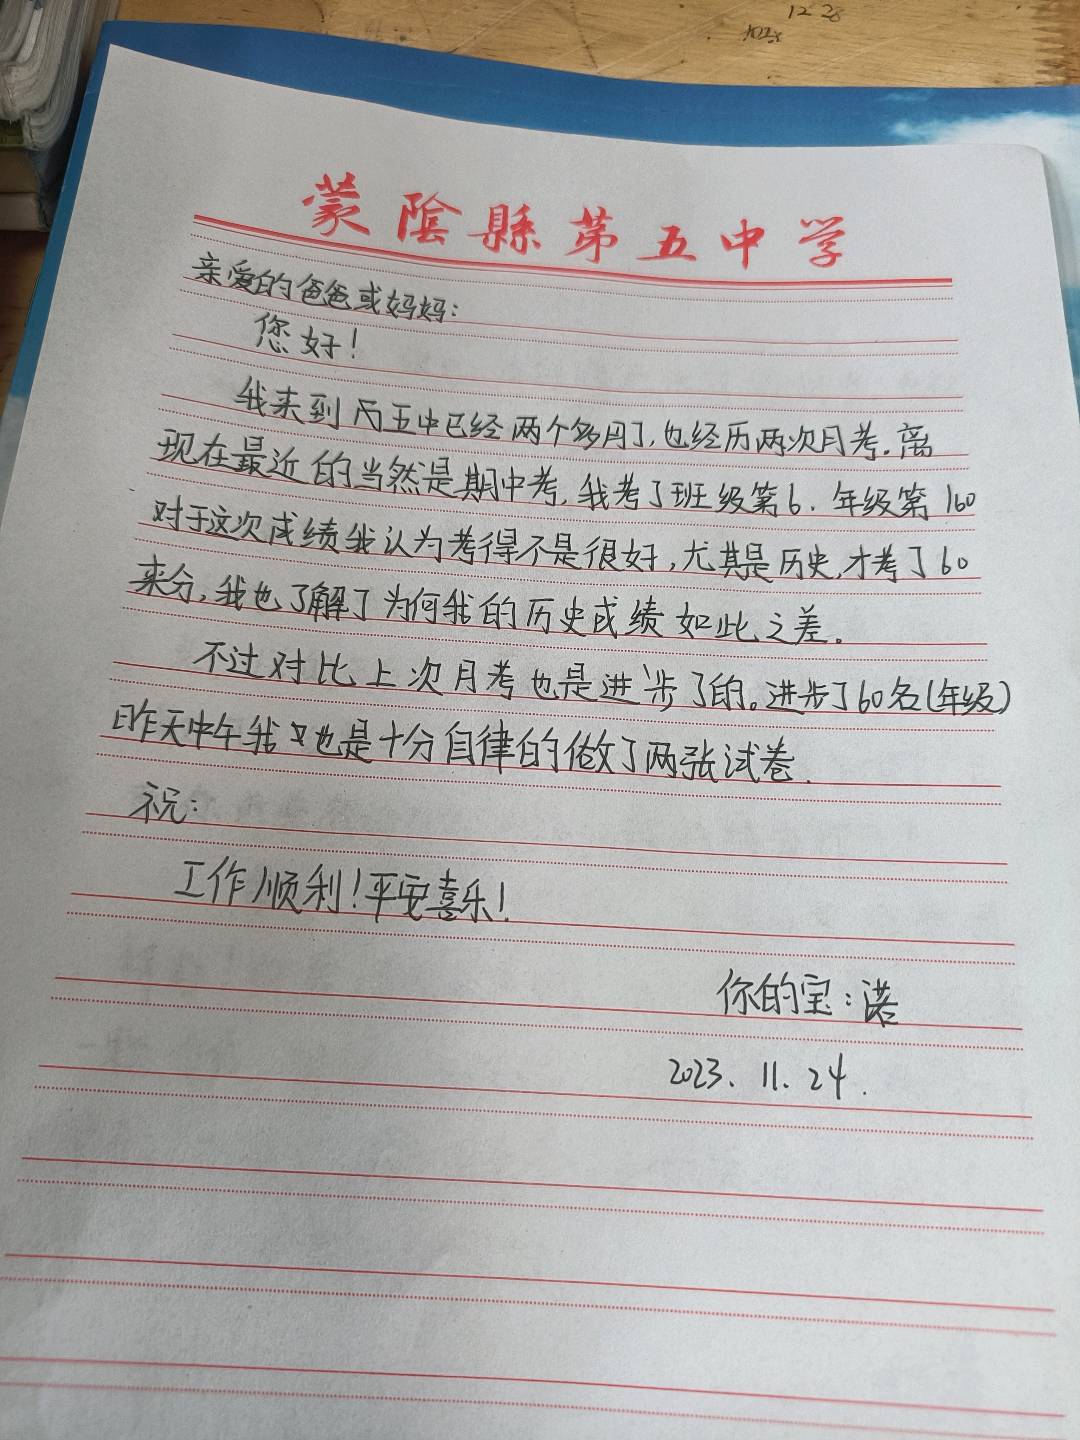 12 28
蒙陰縣第五中学
亲爱的爸爸或妈妈：
您好！
我来到 五中已经两个多月了，也经历两次月考。离
现在最近的当然是期中考，我考了班级第6．年级第160
对于这次成绩我认为考得不是很好，尤其是历史，才考了60
来分，我也了解了为何我的历史成绩如此之差。
不过对比上次月考也是进步了的。进步了60名(年级)
昨天中午我又也是十分自律的做了两张试卷．
祝：
工作顺利！平安喜乐！
你的宝：诺
2023．11．24．